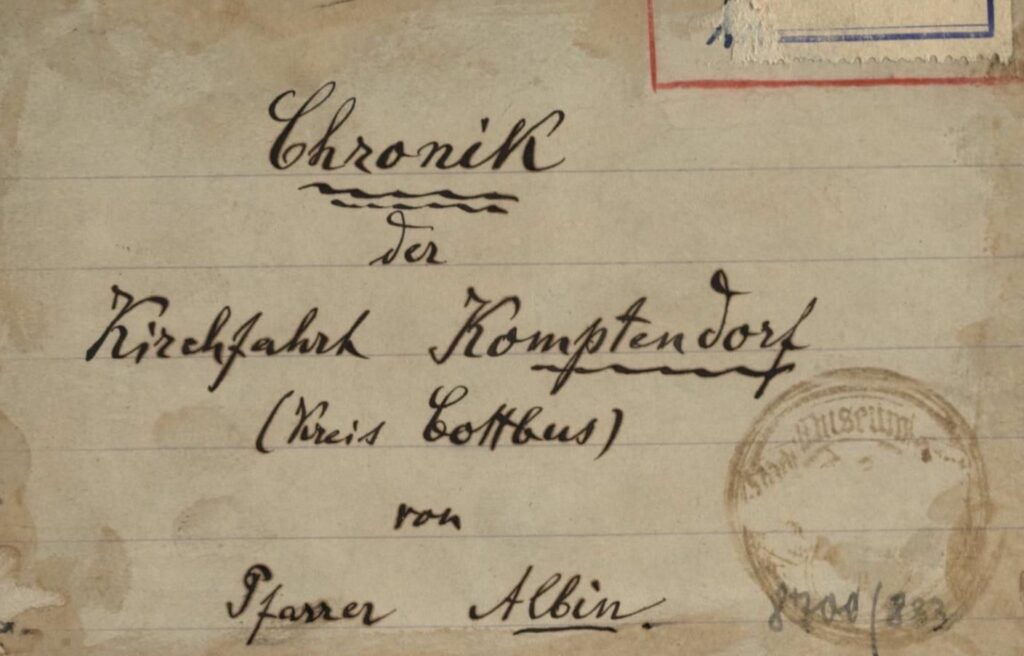 Chronik
der
Kirchfahrt Komptendorf
(Kreis Cottbus)
von
Pfarrer Albin.
Museum
8700/833